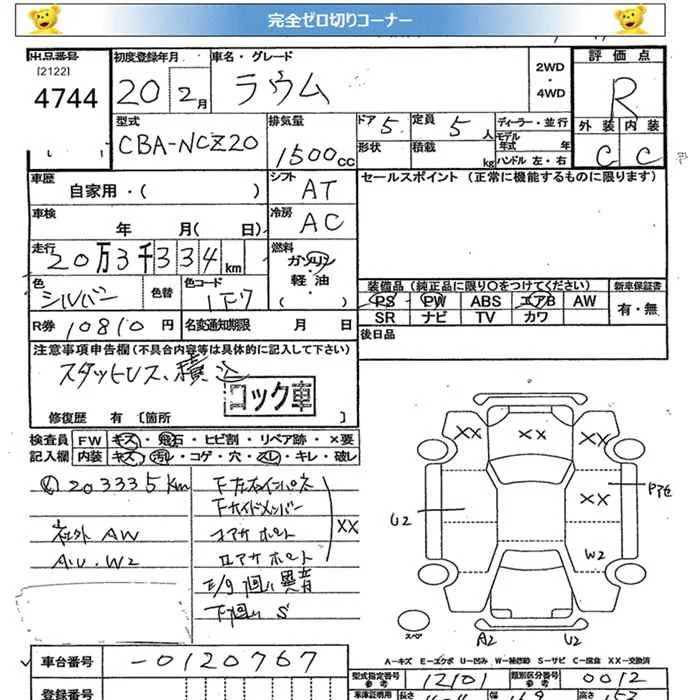 完全ゼロ切りコーナー
出品番号
[2122]
4744
初度登録年月
20 2月
車名・グレード
ラウム
2WD
・
4WD
評価点
R
外装 内装
C C
型式
CBA-NCZ20
排気量
1500cc
ドア 5
定員 5人
ディーラー・並行
形状
積載 kg
モデル年式 年
ハンドル 左・右
車歴
自家用・( )
シフト
AT
セールスポイント (正常に機能するものに限ります)
車検
年 月( 日)
冷房
AC
走行
20万3千334km
燃料
ガソリン
軽油
・( )
色
シルバー
色替
色コード
1F7
装備品 (純正品に限り○をつけてください)
新車保証書
PS PW ABS エアB AW
有・無
SR ナビ TV カワ
R券 10810円
名変通知期限 月 日
後日品
注意事項申告欄 (不具合内容等は具体的に記入して下さい)
スタットレス、積込
コック車
修復歴 有 [箇所 ]
検査員 FW キズ・飛石・ヒビ割・リペア跡・×要
記入欄 内装 キズ・汚れ・コゲ・穴・スレ・キレ・破レ
203335km
社外 AW
AU・W2
××
F7回り S
×× ×× ××
××
U2
W2
スペア
A2 U2
A-キズ E-エクボ U-凹み W-補修跡 S-サビ C-腐食 XX-交換済
車台番号
-0120767
型式指定番号
12101
類別区分番号
0012
登録番号
車庫証明用 長さ
高さ